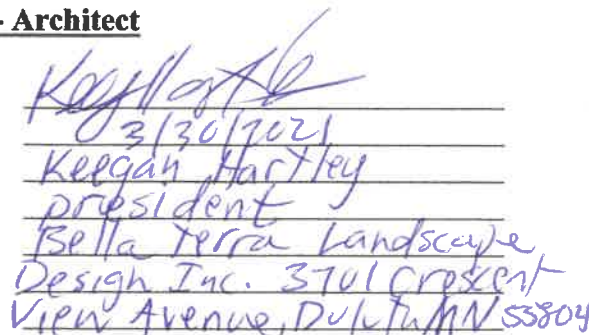 - Architect
3/30/2021
Keegan Hartley
president
Bella Terra Landscape
Design Inc. 3701 Crescent
View Avenue, Duluth MN 55804